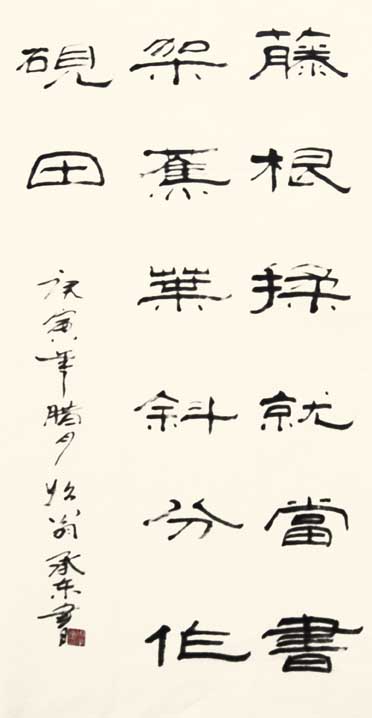 藤根揉就當書
架蕉葉斜分作
硯田
庚寅年臘月翁承東書